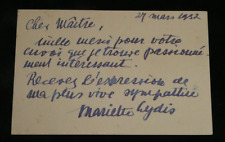 27 mars 1952
Cher Maître,
mille merci pour votre
envoi que je trouve passionné
ment intéressant.
Recevez l'expression de
ma plus vive sympathie
Mariette Lydis